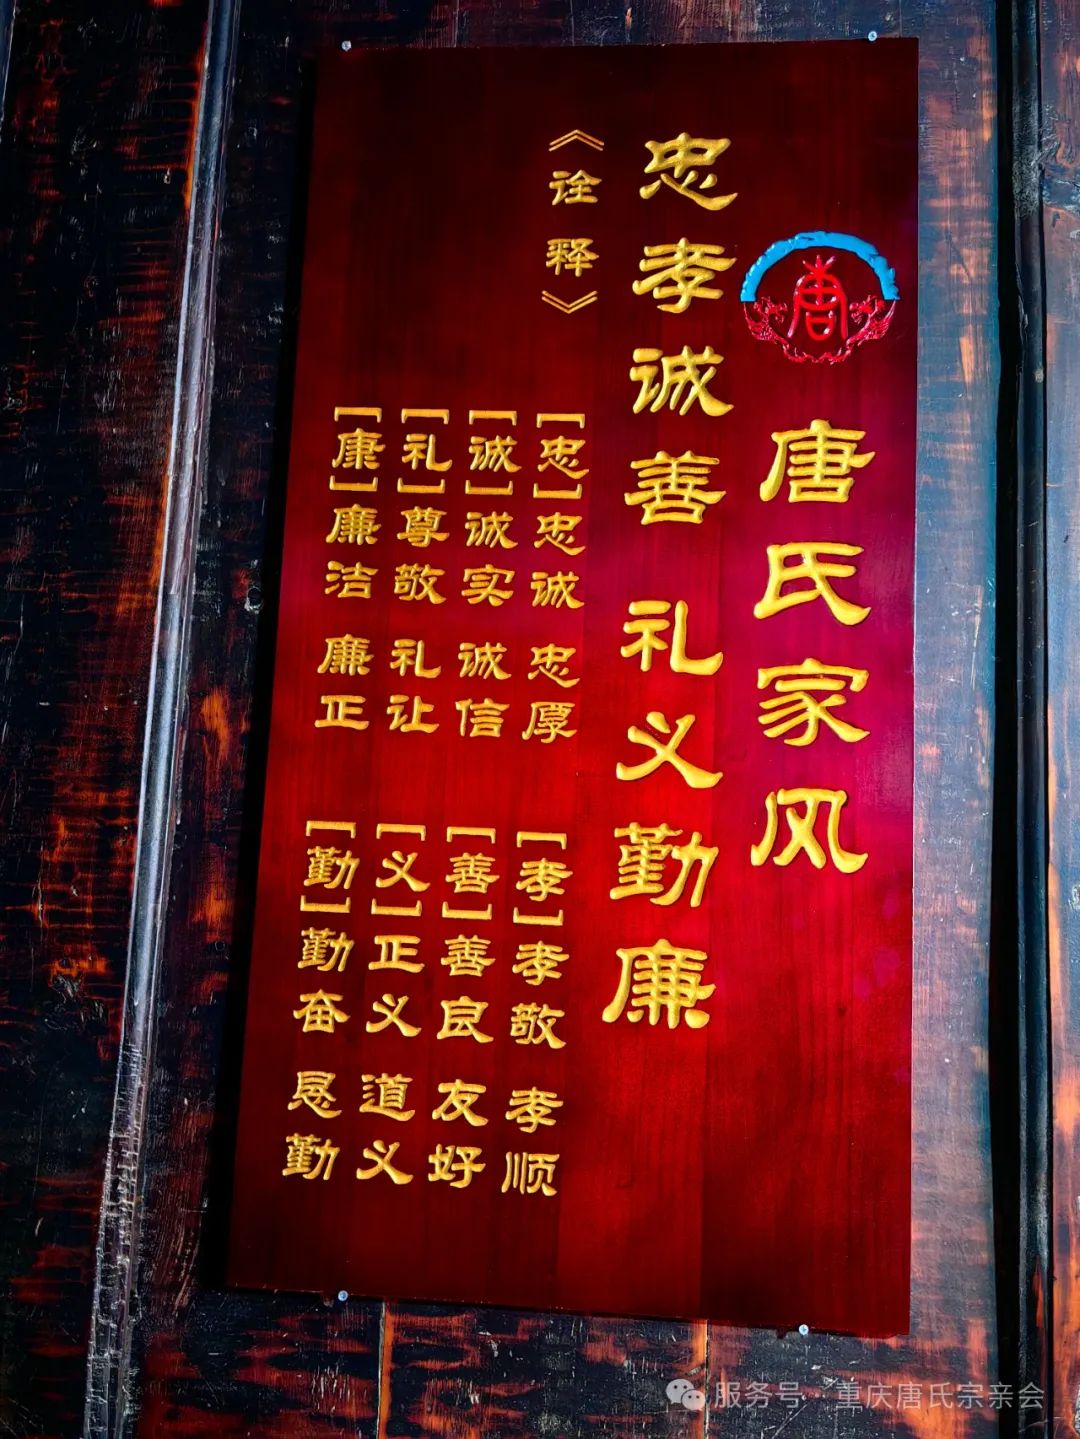 唐
唐氏家风
忠孝诚善 礼义勤廉
《诠释》
[忠]忠诚 忠厚 [孝]孝敬 孝顺
[诚]诚实 诚信 [善]善良 友好
[礼]尊敬 礼让 [义]正义 道义
[康]廉洁 廉正 [勤]勤奋 恳勤
服务号·重庆唐氏宗亲会